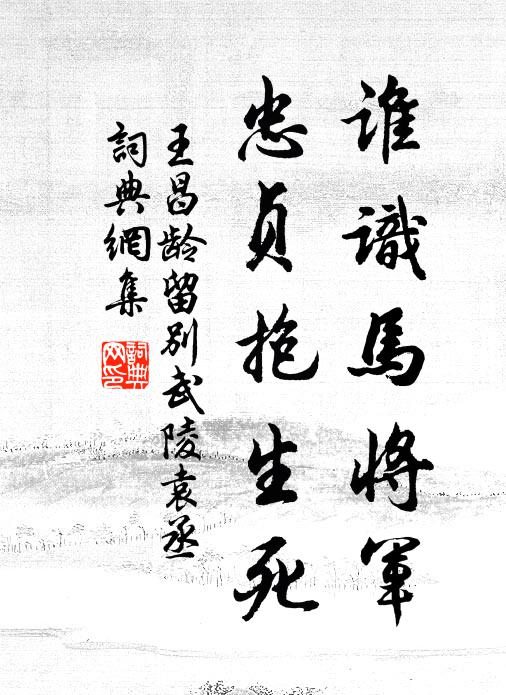 誰識馬將軍
忠貞抱生死
王昌龄留別武陵袁丞
詞典網集
詞典
网印